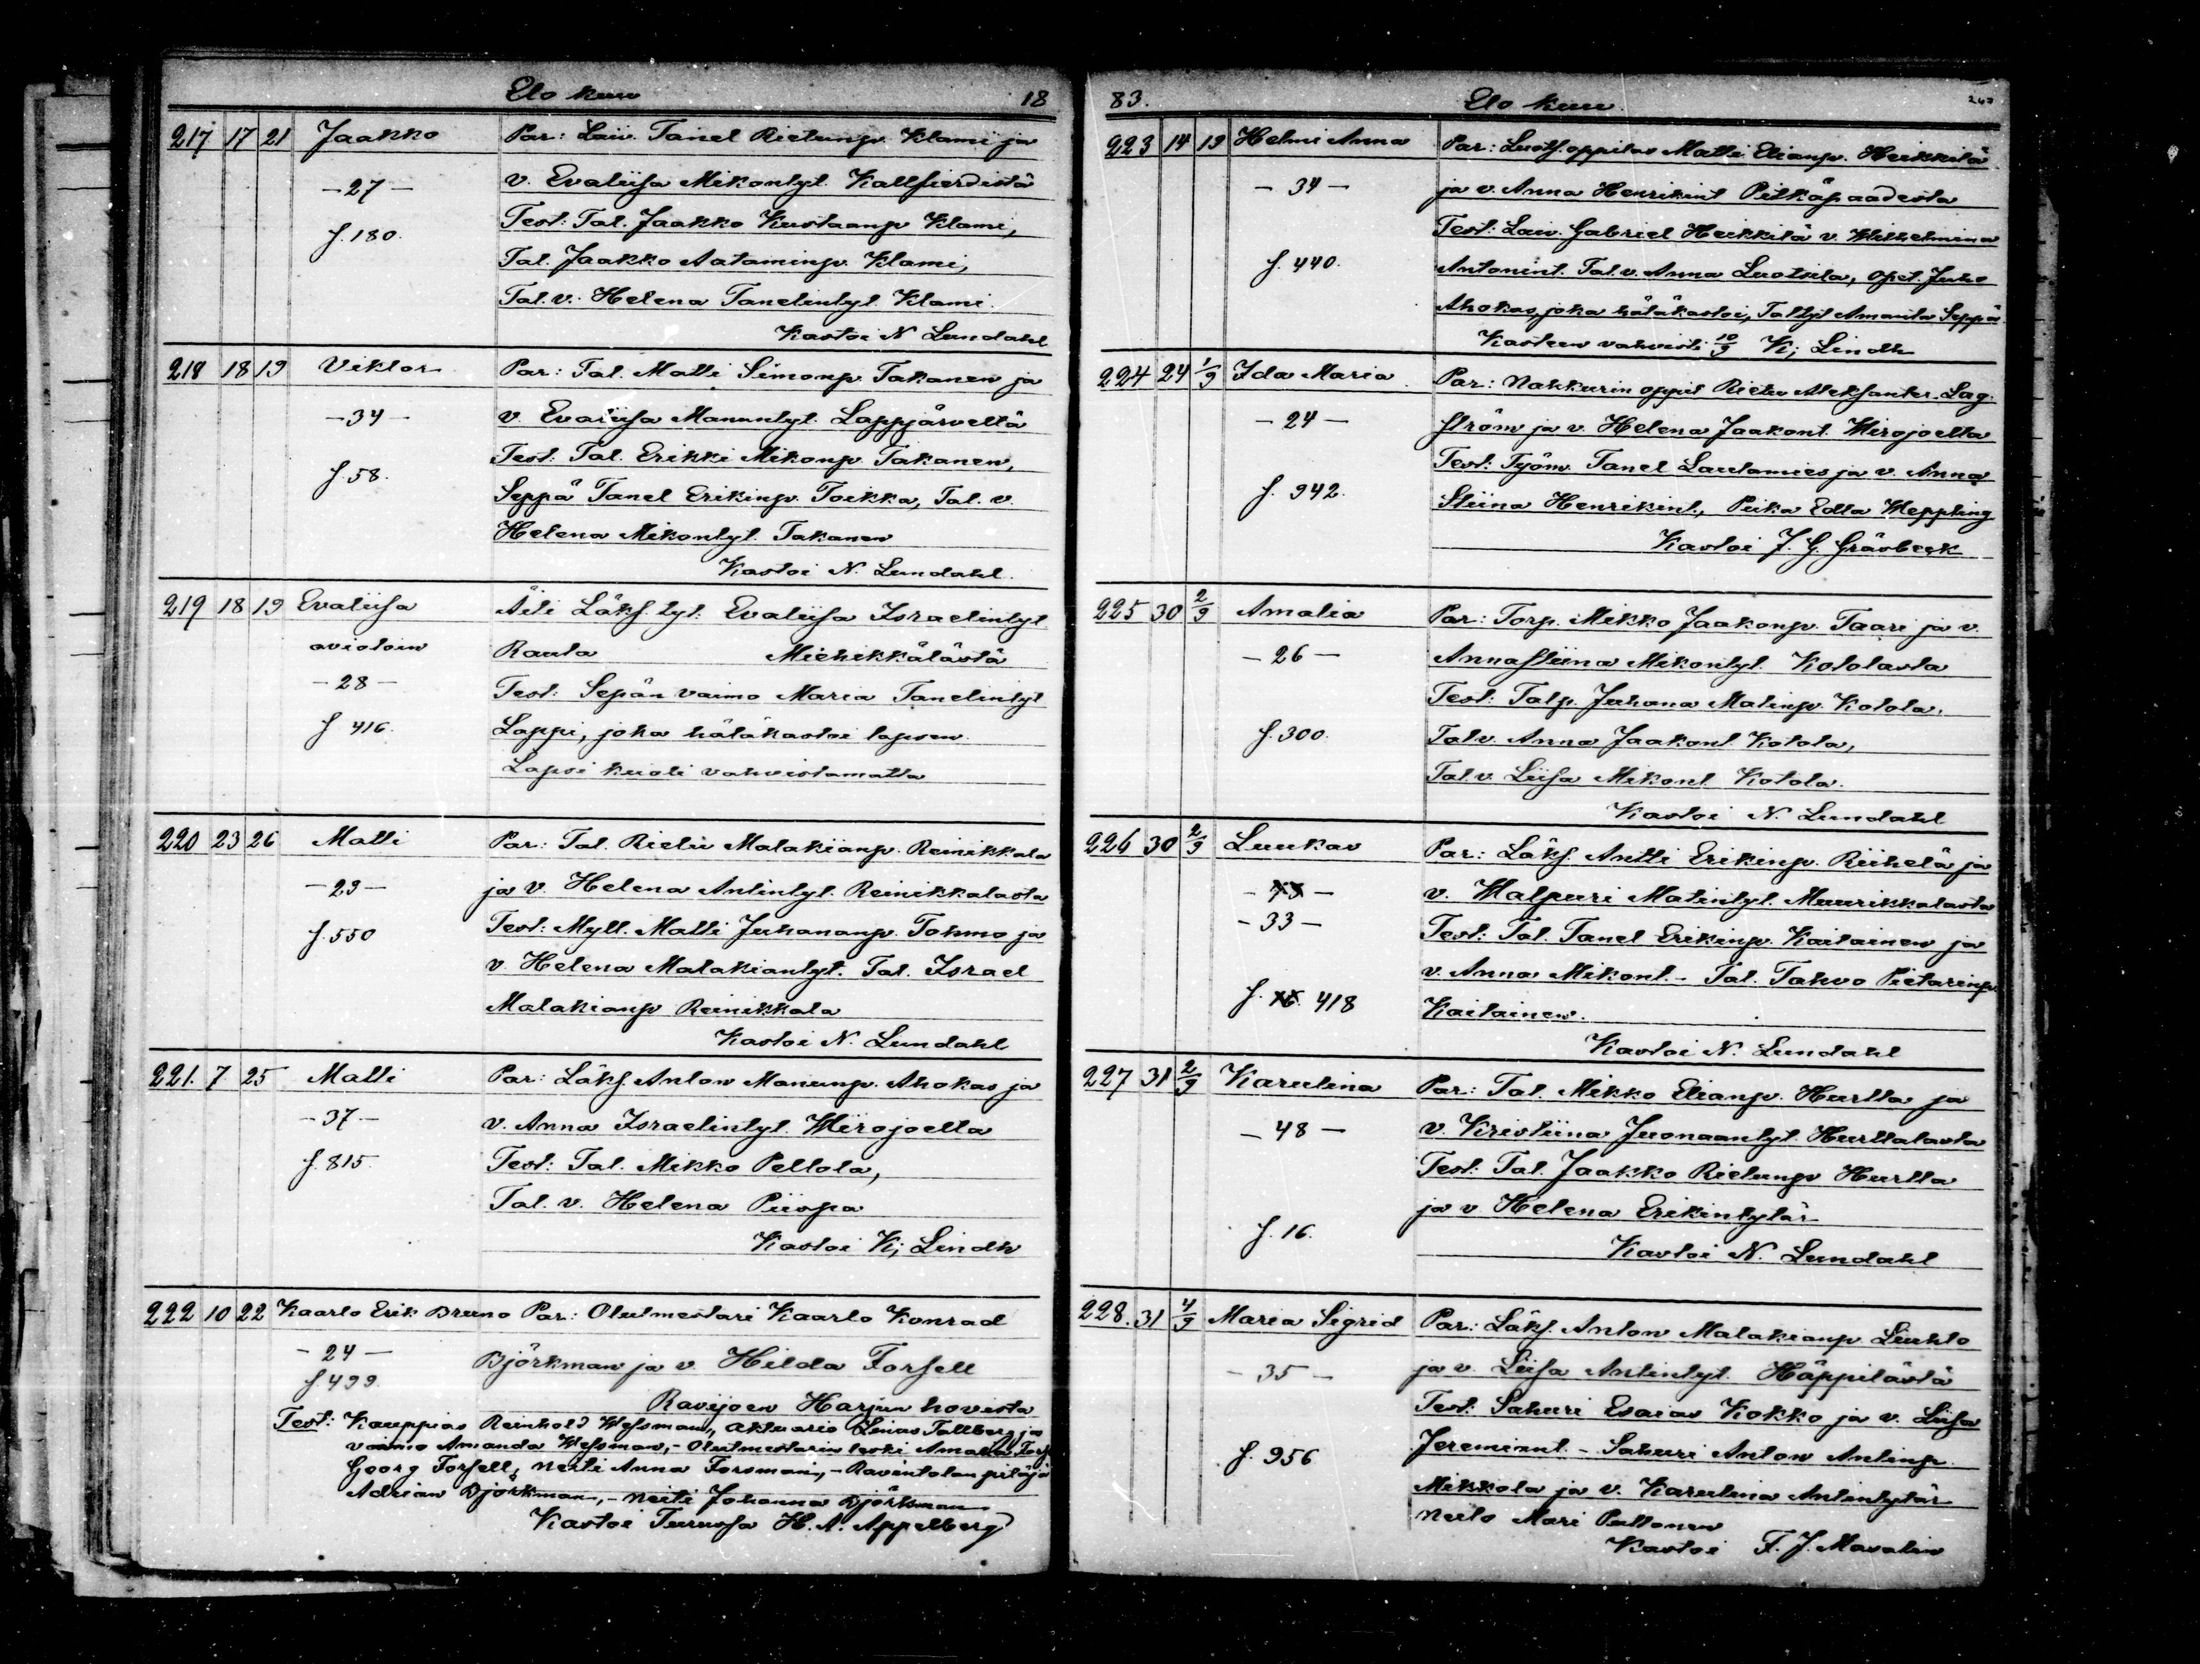 Elo kuu 18
217 17 21 Jaakko Par: Laiv. Tanel Rietunp. Klami ja
-27- v. Evaliisa Mikontyt. Kallfierdistä
f. 180. Test: Tal. Jaakko Kustaanp Klami,
Tal. Jaakko Aataminp. Klami,
Tal. v. Helena Tanelintyt Klami.
Kastoi N Lundahl
218 18 19 Viktor Par: Tal. Matti Simonp. Takanen ja
-34- v. Evaliisa Manuntyt. Lappjärveltä
f. 58. Test: Tal. Erikki Mikonp Takanen,
Seppä Tanel Erikinp. Toikka, Tal. v.
Helena Mikontyt. Takanen
Kastoi N. Lundahl.
219 18 19 Evaliisa Äiti Läks. tyt: Evaliisa Israelintyt
aviotoin Rauta Miehikkälästä
-28- Test: Sepän vaimo Maria Tanelintyt
f 416. Lappi, joka hätäkastoi lapsen.
Lapsi kuoli vahvistamatta
220 23 26 Matti Par: Tal. Rietu Malakianp. Reinikkala
-29- ja v. Helena Antintyt. Reinikkalasta
f. 550 Test: Myll. Matti Juhananp. Tohmo ja
v. Helena Malakiantyt. Tal. Israel
Malakianp Reinikkala
Kastoi N. Lundahl
221. 7. 25 Matti Par: Läks. Anton Manunp. Ahokas ja
-37- v. Anna Israelintyt. Wirojoelta
f. 815. Test: Tal. Mikko Peltola,
Tal. v. Helena Piispa
Kastoi K; Lindh
222 10 22 Kaarlo Erik Bruno Par: Olutmestari Kaarlo Konrad
-24- Björkman ja v. Hilda Forsell
f 499. Ravijoen Harjun hovista
Test: Kauppias Reinhold Wessman, aktuario Linus Tallberg ja
vaimo Amanda Wessman, - Olutmestarin leski Amalia
Georg Forsell, neiti Anna Forsman, - Ravintolan pitäjä
Adrian Björkman, - neiti Johanna Björkman
Kastoi Turussa H. A. Appelberg
83. Elo kuu.
223 14 19 Helmi Anna Par: Luots. oppilas Matti Elianp. Heikkilä
-34- ja v. Anna Henrikint Pitkäpaadesta
Test: Laiv. Gabriel Heikkilä v. Wilhelmina
f. 440. Antonint. Tal. v. Anna Luotsila, opet. Juho
Ahokas, joka hätäkastoi, Tal tyt Amanda Seppä
Kasteen vahvisti 10/9 K; Lindh
224 24 1/9 Ida Maria Par: Nahkurin oppil Rietu Aleksanter Lag-
-24- ström ja v. Helena Jaakont. Wirojoelta
Test: Työm. Tanel Lautamies ja v. Anna
f. 942. Stiina Henrikint., Piika Edla Weppling
Kastoi J. G. Gråsbeck
225 30 2/9 Amalia Par: Torp. Mikko Jaakonp. Taari ja v.
-26- Annastiina Mikontyt. Kotolasta
Test: Talp. Juhana Matinp. Kotola,
f. 300. Tal v. Anna Jaakont Kotola,
Tal. v. Liisa Mikont Kotola.
Kastoi N. Lundahl
226 30 2/9 Luukas Par: Läks. Antti Erikinp. Riihelä ja
v. Walpuri Matintyt. Muurikkalasta
-33- Test: Tal. Tanel Erikinp. Kaitainen ja
v. Anna Mikont. - Tal. Tahvo Pietarinp.
f. 16. 418 Kaitainen.
Kastoi N. Lundahl
227 31 2/9 Karulina Par: Tal. Mikko Elianp. Hurtta ja
-48- v. Kristiina Juonaantyt. Hurttalasta
Test: Tal. Jaakko Rietunp Hurtta
ja v Helena Erikintytär
f. 16. Kastoi N. Lundahl
228. 31 4/9 Maria Sigrid Par: Läks. Anton Malakianp Luhto
-35- ja v. Liisa Antintyt. Häppilästä
Test: Sahuri Esaias Kokko ja v. Liisa
f. 956 Jeremiant. - Sahuri Anton Antinp.
Mikkola ja v. Karulina Antintytär
Neito Mari Pultonen
Kastoi F. J. Masalin